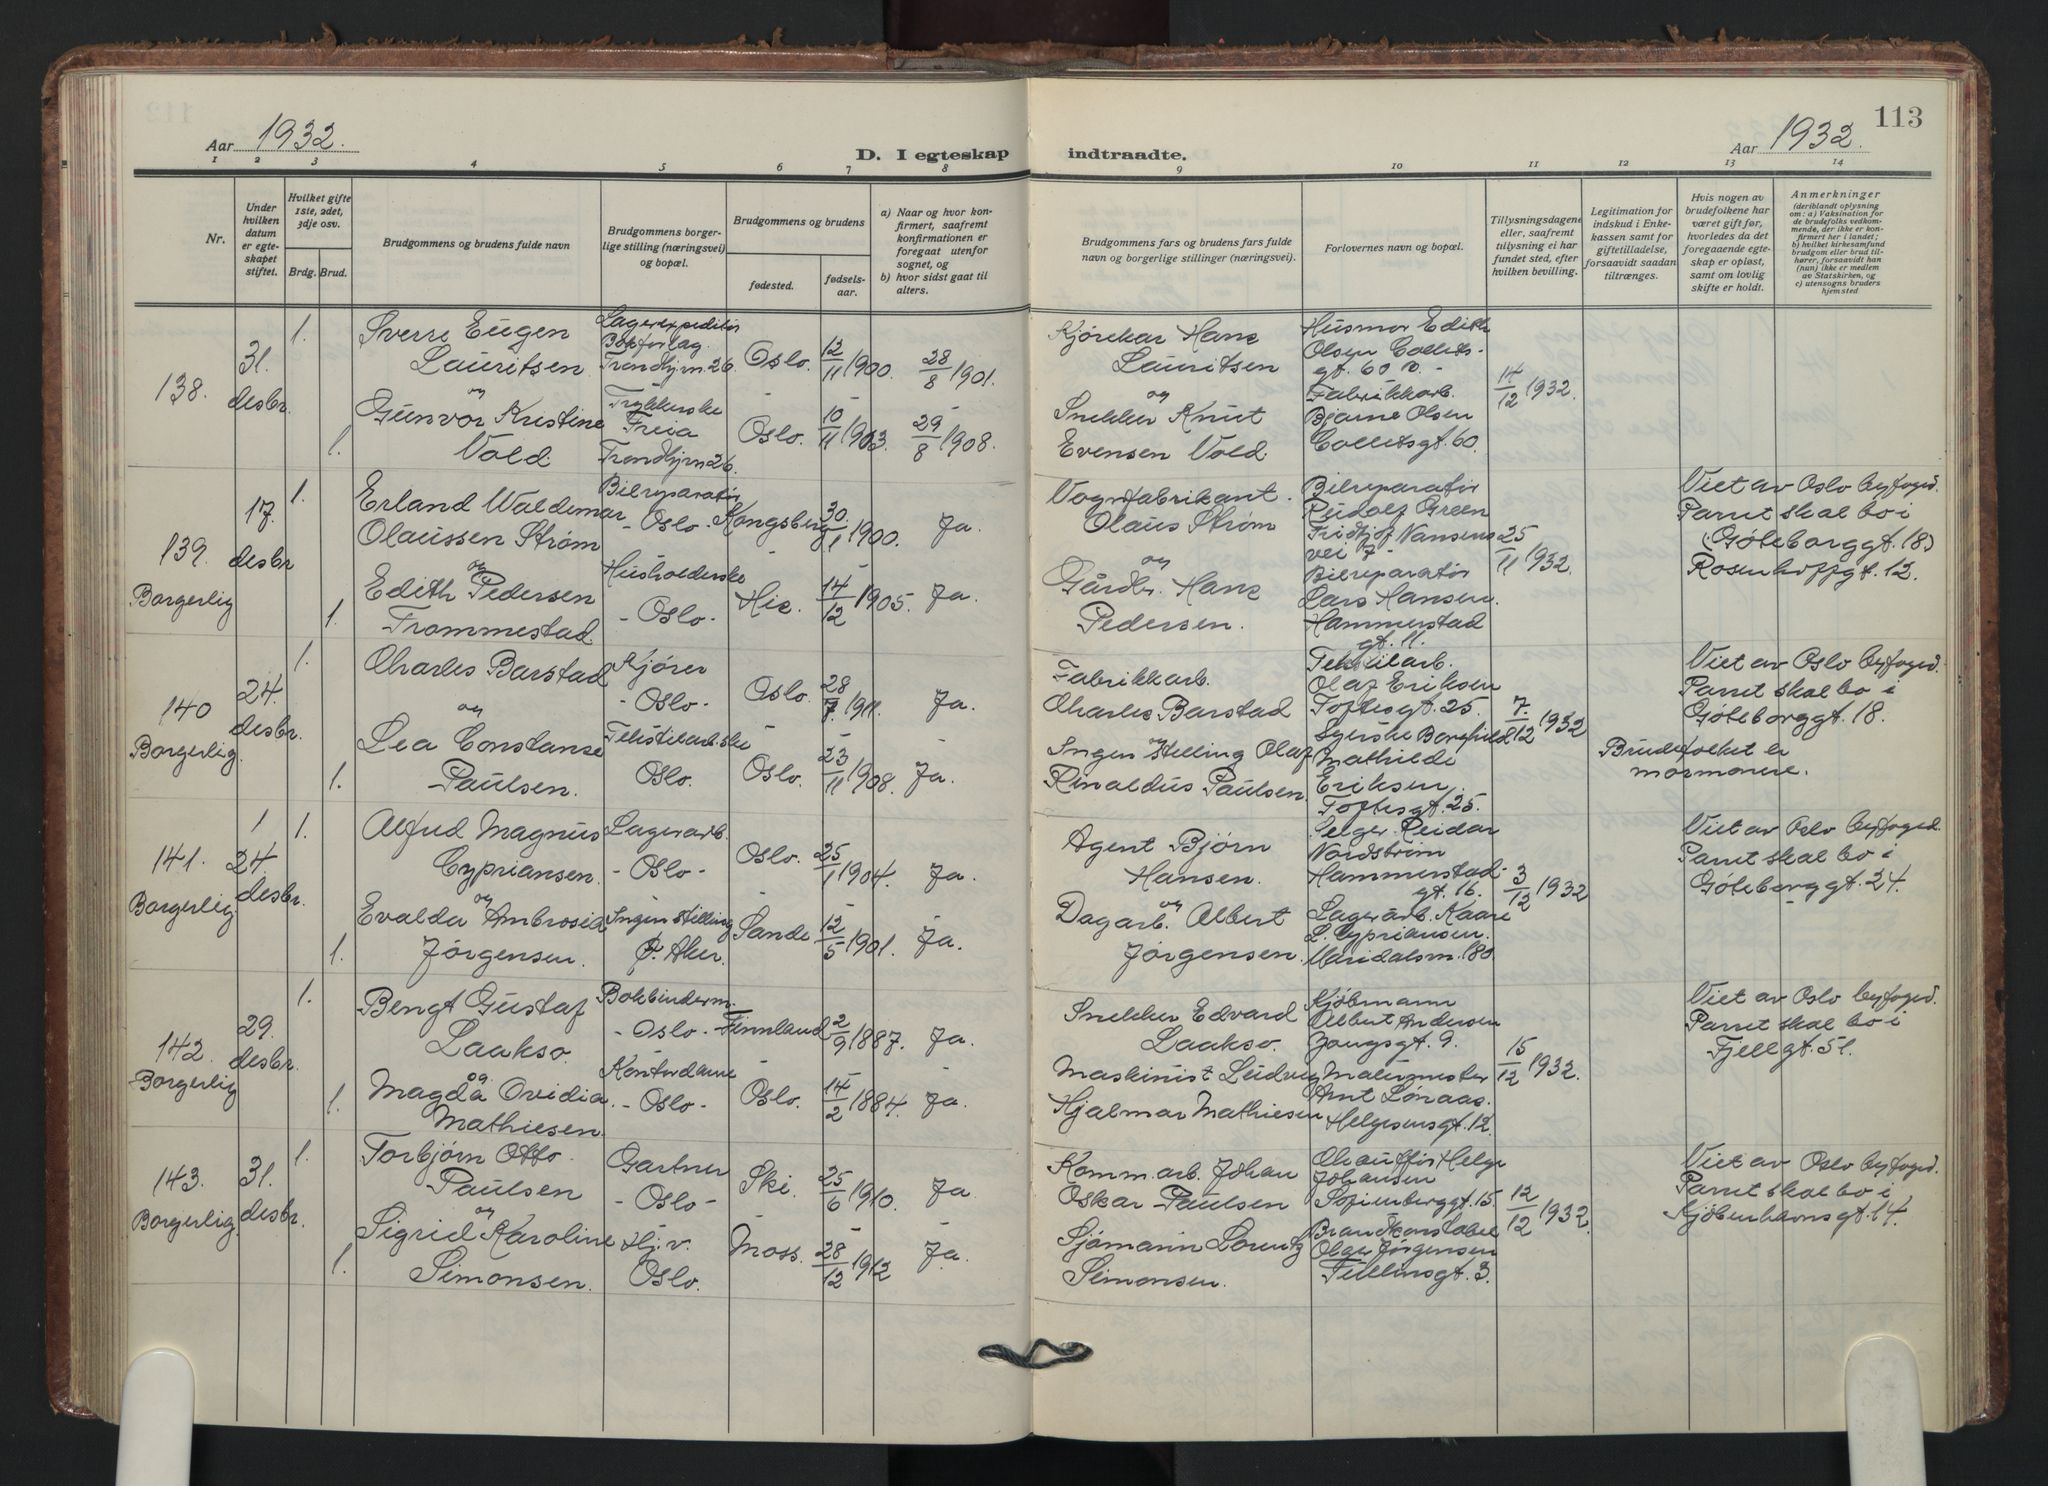 Aar 1932.
D. I egteskap
indtraadte.
Aar 1932.
113
1 2 3 4 5 6 7 8
9 10 11 12 13 14
Nr.
Under hvilken datum er egteskapet stiftet.
Hvilket gifte 1ste, 2det, 3dje osv.
Brdg. Brud.
Brudgommens og brudens fulde navn
Brudgommens borgerlige stilling (næringsvei) og bopæl.
Brudgommens og brudens
fødested.
fødselsaar.
a) Naar og hvor konfirmert, saafremt konfirmationen er foregaat utenfor sognet, og
b) hvor sidst gaat til alters.
Brudgommens fars og brudens fars fulde navn og borgerlige stillinger (næringsvei).
Forlovernes navn og bopæl.
Tillysningsdagene eller, saafremt tillysning ei har fundet sted, efter hvilken bevilling.
Legitimation for indskud i Enkekassen samt for giftetilladelse, forsaavidt saadan tiltrænges.
Hvis nogen av brudefolkene har været gift før, hvorledes da det foregaaende egteskap er opløst, samt om lovlig skifte er holdt.
Anmerkninger
(deriblandt oplysning om: a) Vaksination for de brudefolks vedkommende, der ikke er konfirmert her i landet; b) hvilket kirkesamfund brudgom eller brud tilhører, forsaavidt han (hun) ikke er medlem av Statskirken, og c) utensogns bruders hjemsted
138.
31. desbr.
1.
Sverre Eugen
Lauritsen
og
Gunvor Kristine
Vold
1.
Lagerexpeditør
Bokforlag.
Trondhjm. 26.
Trykkerske
Freia
Trondhjm 26.
Oslo. 12/11 1900. 28/8 1901.
Oslo. 10/11 1903. 29/8 1908.
Kjørekar Hans
Lauritsen
og
Snekker Knut
Evensen Vold.
Husmor Edith
Olsen Colletsgt. 60
Fabrikkarb.
Bjarne Olsen
Colletsgt. 60.
14/12 1932.
139.
Borgerlig
17. desbr
1.
Erland Waldemar
Olaussen Strøm
og
Edith Pedersen
Trommestad.
1.
Bilreparatør
- Oslo -
Husholderske
- Oslo -
Kongsberg 30/1 1900. Ja.
Hic. 14/12 1905. Ja.
Vognfabrikant.
Olaus Strøm
og
Gårdbr. Hans
Pedersen.
Bilreparatør
Reidolf Green
Fridtjof Nansens
vei 7 -
Bilreparatør
Lars Hansen.
Hammerstad
gt. 11.
25/11 1932.
Viet av Oslo byfoged.
Parret skal bo i
(Göteborggt. 18)
Rosenhoffgt. 12.
140
Borgerlig.
24. desbr.
1.
Charles Barstad
og
Lea Constanse
Paulsen.
1.
Kjører
- Oslo -
Tekstilarb.ske
Oslo.
Oslo. 28/7 1911. Ja.
Oslo. 23/11 1908. Ja.
Fabrikkarb.
Charles Barstad
og
Ingen Stilling Olaf
Rinaldus Paulsen.
Tekstilarb.
Olaf Eriksen
Toftesgt. 25.
Syerske
Mathilde
Eriksen
Toftesgt. 25.
7/12 1932
Brudefolket er
mormonere.
Viet av Oslo byfoged.
Parret skal bo i
Göteborggt. 18.
141.
Borgerlig
24. desbr.
1.
Alfred Magnus
Cypriansen.
og
Evalda Ambrosia
Jørgensen.
1.
Lagerarb.
- Oslo -
Ingen stilling
Ø. Aker.
Oslo. 25/1 1904. Ja.
Sande 12/5 1901. Ja.
Agent Bjørn
Hansen.
og
Dagarb. Albert
Jørgensen.
Selger Reidar
Nordstrøm
Hammerstad
gt. 16.
Lagerarb. Kaare
L. Cypriansen.
Maridalsm. 180
3/12 1932
Viet av Oslo byfoged.
Parret skal bo i
Göteborggt. 24.
142.
Borgerlig
29. desbr.
1.
Bengt Gustaf
Laakso.
og
Magda Ovidia
Mathiesen.
1.
Bokbinderm.
- Oslo -
Kontordame
- Oslo -
Finnland 2/9 1887. Ja.
Oslo. 14/2 1884. Ja.
Snekker Edvard
Laakso.
Maskinist Ludvig
Hjalmar Mathiesen
Kjøbmann
Albert Andersen
Jongsgt. 9.
Malermester
Arnt Lønaas.
Helgesensgt. 12.
15/12 1932.
Viet av Oslo byfoged.
Parret skal bo i
Fjellgt. 51.
143.
Borgerlig.
31. desbr.
1.
Torbjørn Otto
Paulsen
og
Sigrid Karoline
Simonsen.
1.
Gartner
- Oslo -
Hj.v.
Oslo.
Ski. 25/6 1910. Ja
Moss. 28/12 1912 Ja.
Komm.arb. Johan
Oskar Paulsen
Sjømann Lorentz
Simonsen.
Chauffør Helge
Johansen
Sofienberggt. 15
Brandkonstabel
Olger Jørgensen
12/12 1932.
Viet av Oslo byfoged.
Parret skal bo i
Kjøbenhavnsgt. 14.